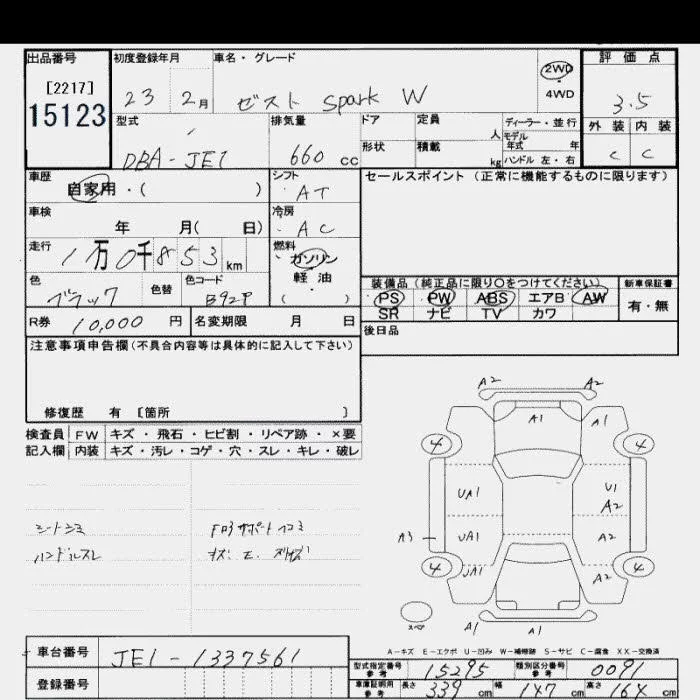 出品番号 初度登録年月 車名・グレード 評価点
[2217] 2WD
15123 23 2月 ゼスト Spark W 4WD 3.5
型式 排気量 ドア 定員 人 ディーラー・並行 外装 内装
モデル年式 年
DBA-JE1 660 cc 形状 積載 kg ハンドル 左・右 C C
車歴 シフト セールスポイント(正常に機能するものに限ります)
自家用・( ) AT
車検 冷房
年 月( 日) AC
走行 燃料
1万0千853 km ガソリン
軽油
色 色替 色コード 装備品(純正品に限り○をつけてください) 新車保証書
ブラック B92P ( ) PS PW ABS エアB AW 有・無
SR ナビ TV カワ
R券 10,000 円 名変期限 月 日 後日品
注意事項申告欄(不具合内容等は具体的に記入して下さい)
修復歴 有 [箇所 ]
検査員 FW キズ・飛石・ヒビ割・リペア跡・×要
記入欄 内装 キズ・汚レ・コゲ・穴・スレ・キレ・破レ
A2 A2
A1 A1
4 4
UA1 U1
A2
A3 UA1 A2
4 UA1 A2 4
スペア A1 A1
シートシミ
ハンドルスレ
A-キズ E-エクボ U-凹み W-補修跡 S-サビ C-腐食 XX-交換済
車台番号 JE1-1337561
登録番号
型式指定番号 参考 15295 類別区分番号 参考 0091
車庫証明用 参考 長さ 339 cm 幅 147 cm 高さ 16X cm